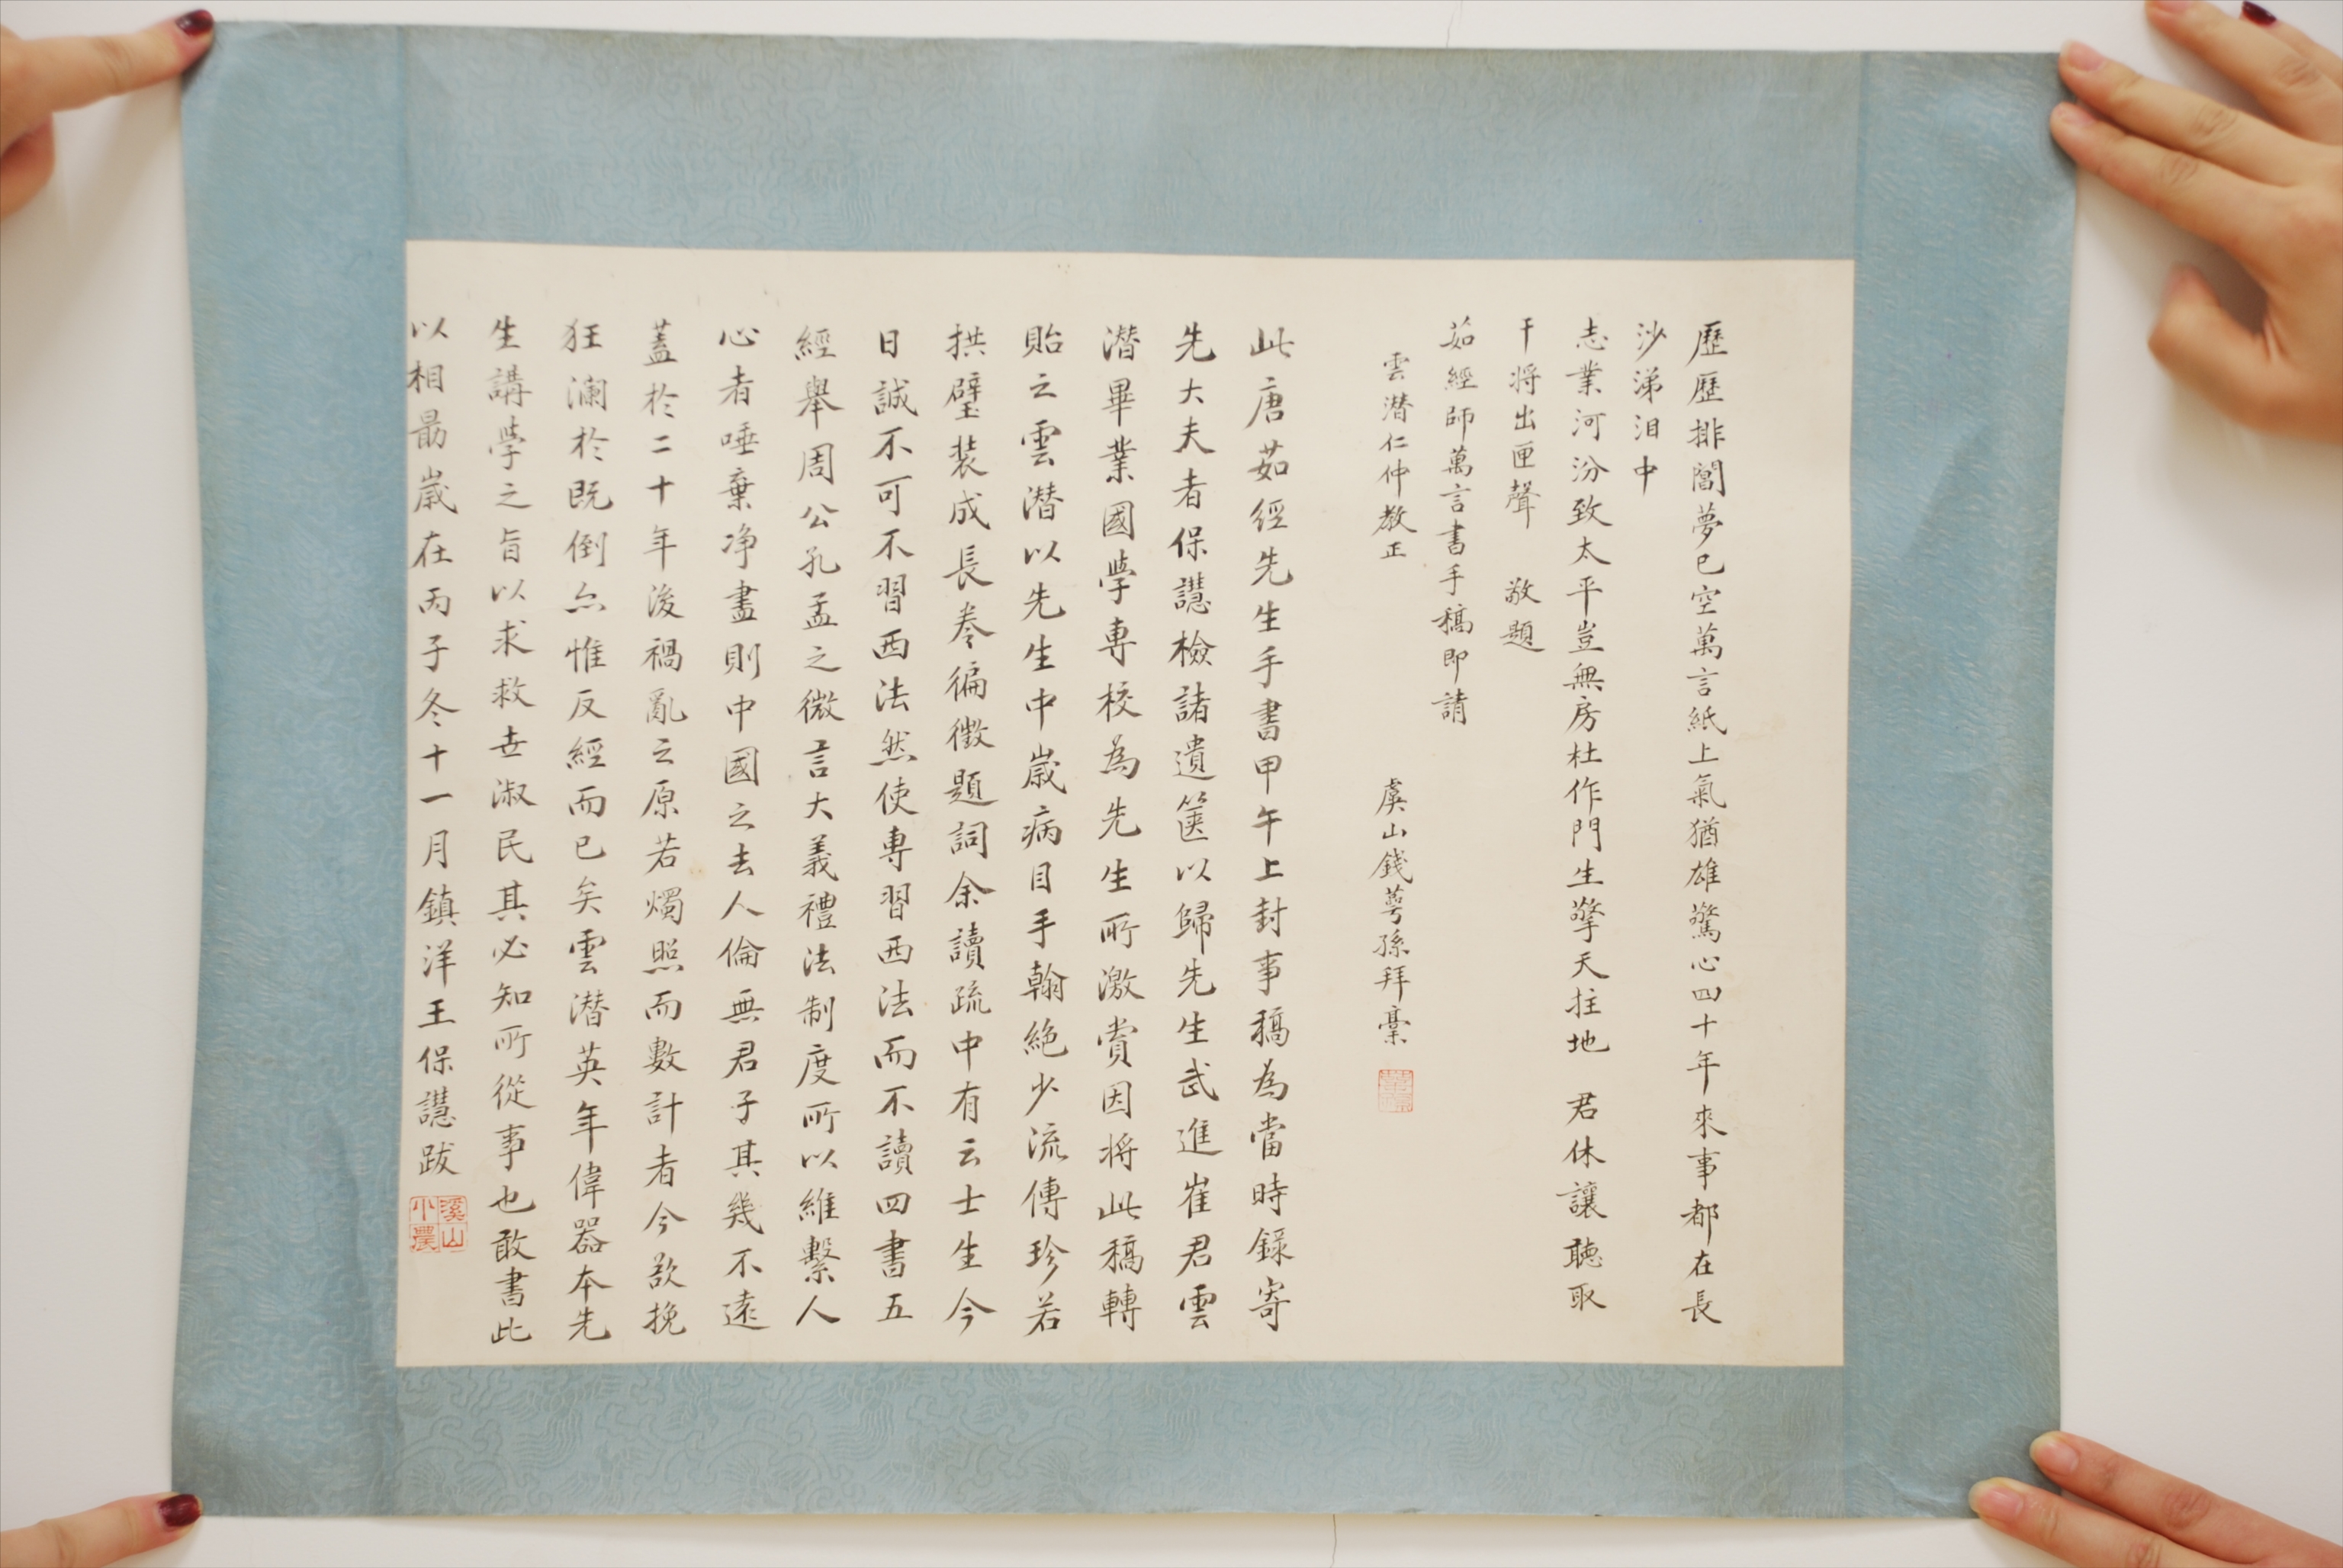 歷歷排閶夢已空萬言紙上氣猶雄驚心四十年來事都在長
沙涕泪中
志業河汾致太平豈無房杜作門生擎天拄地 君休讓聽取
干將出匣聲 敬題
茹經師萬言書手稿即請
雲潛仁仲教正
虞山錢萼孫拜稾
此唐茹經先生手書甲午上封事稿為當時錄寄
先大夫者保譿檢諸遺篋以歸先生武進崔君雲
潛畢業國學專校為先生所激賞因將此稿轉
貽之雲潛以先生中歲病目手翰絕少流傳珍若
拱璧裝成長卷徧徵題詞余讀疏中有云士生今
日誠不可不習西法然使專習西法而不讀四書五
經舉周公孔孟之微言大義禮法制度所以維繫人
心者唾棄净盡則中國之去人倫無君子其幾不遠
蓋於二十年後禍亂之原若燭照而數計者今欲挽
狂瀾於既倒亦惟反經而已矣雲潛英年偉器本先
生講學之旨以求救世淑民其必知所從事也敢書此
以相勗歲在丙子冬十一月鎮洋王保譿跋
溪山
小農